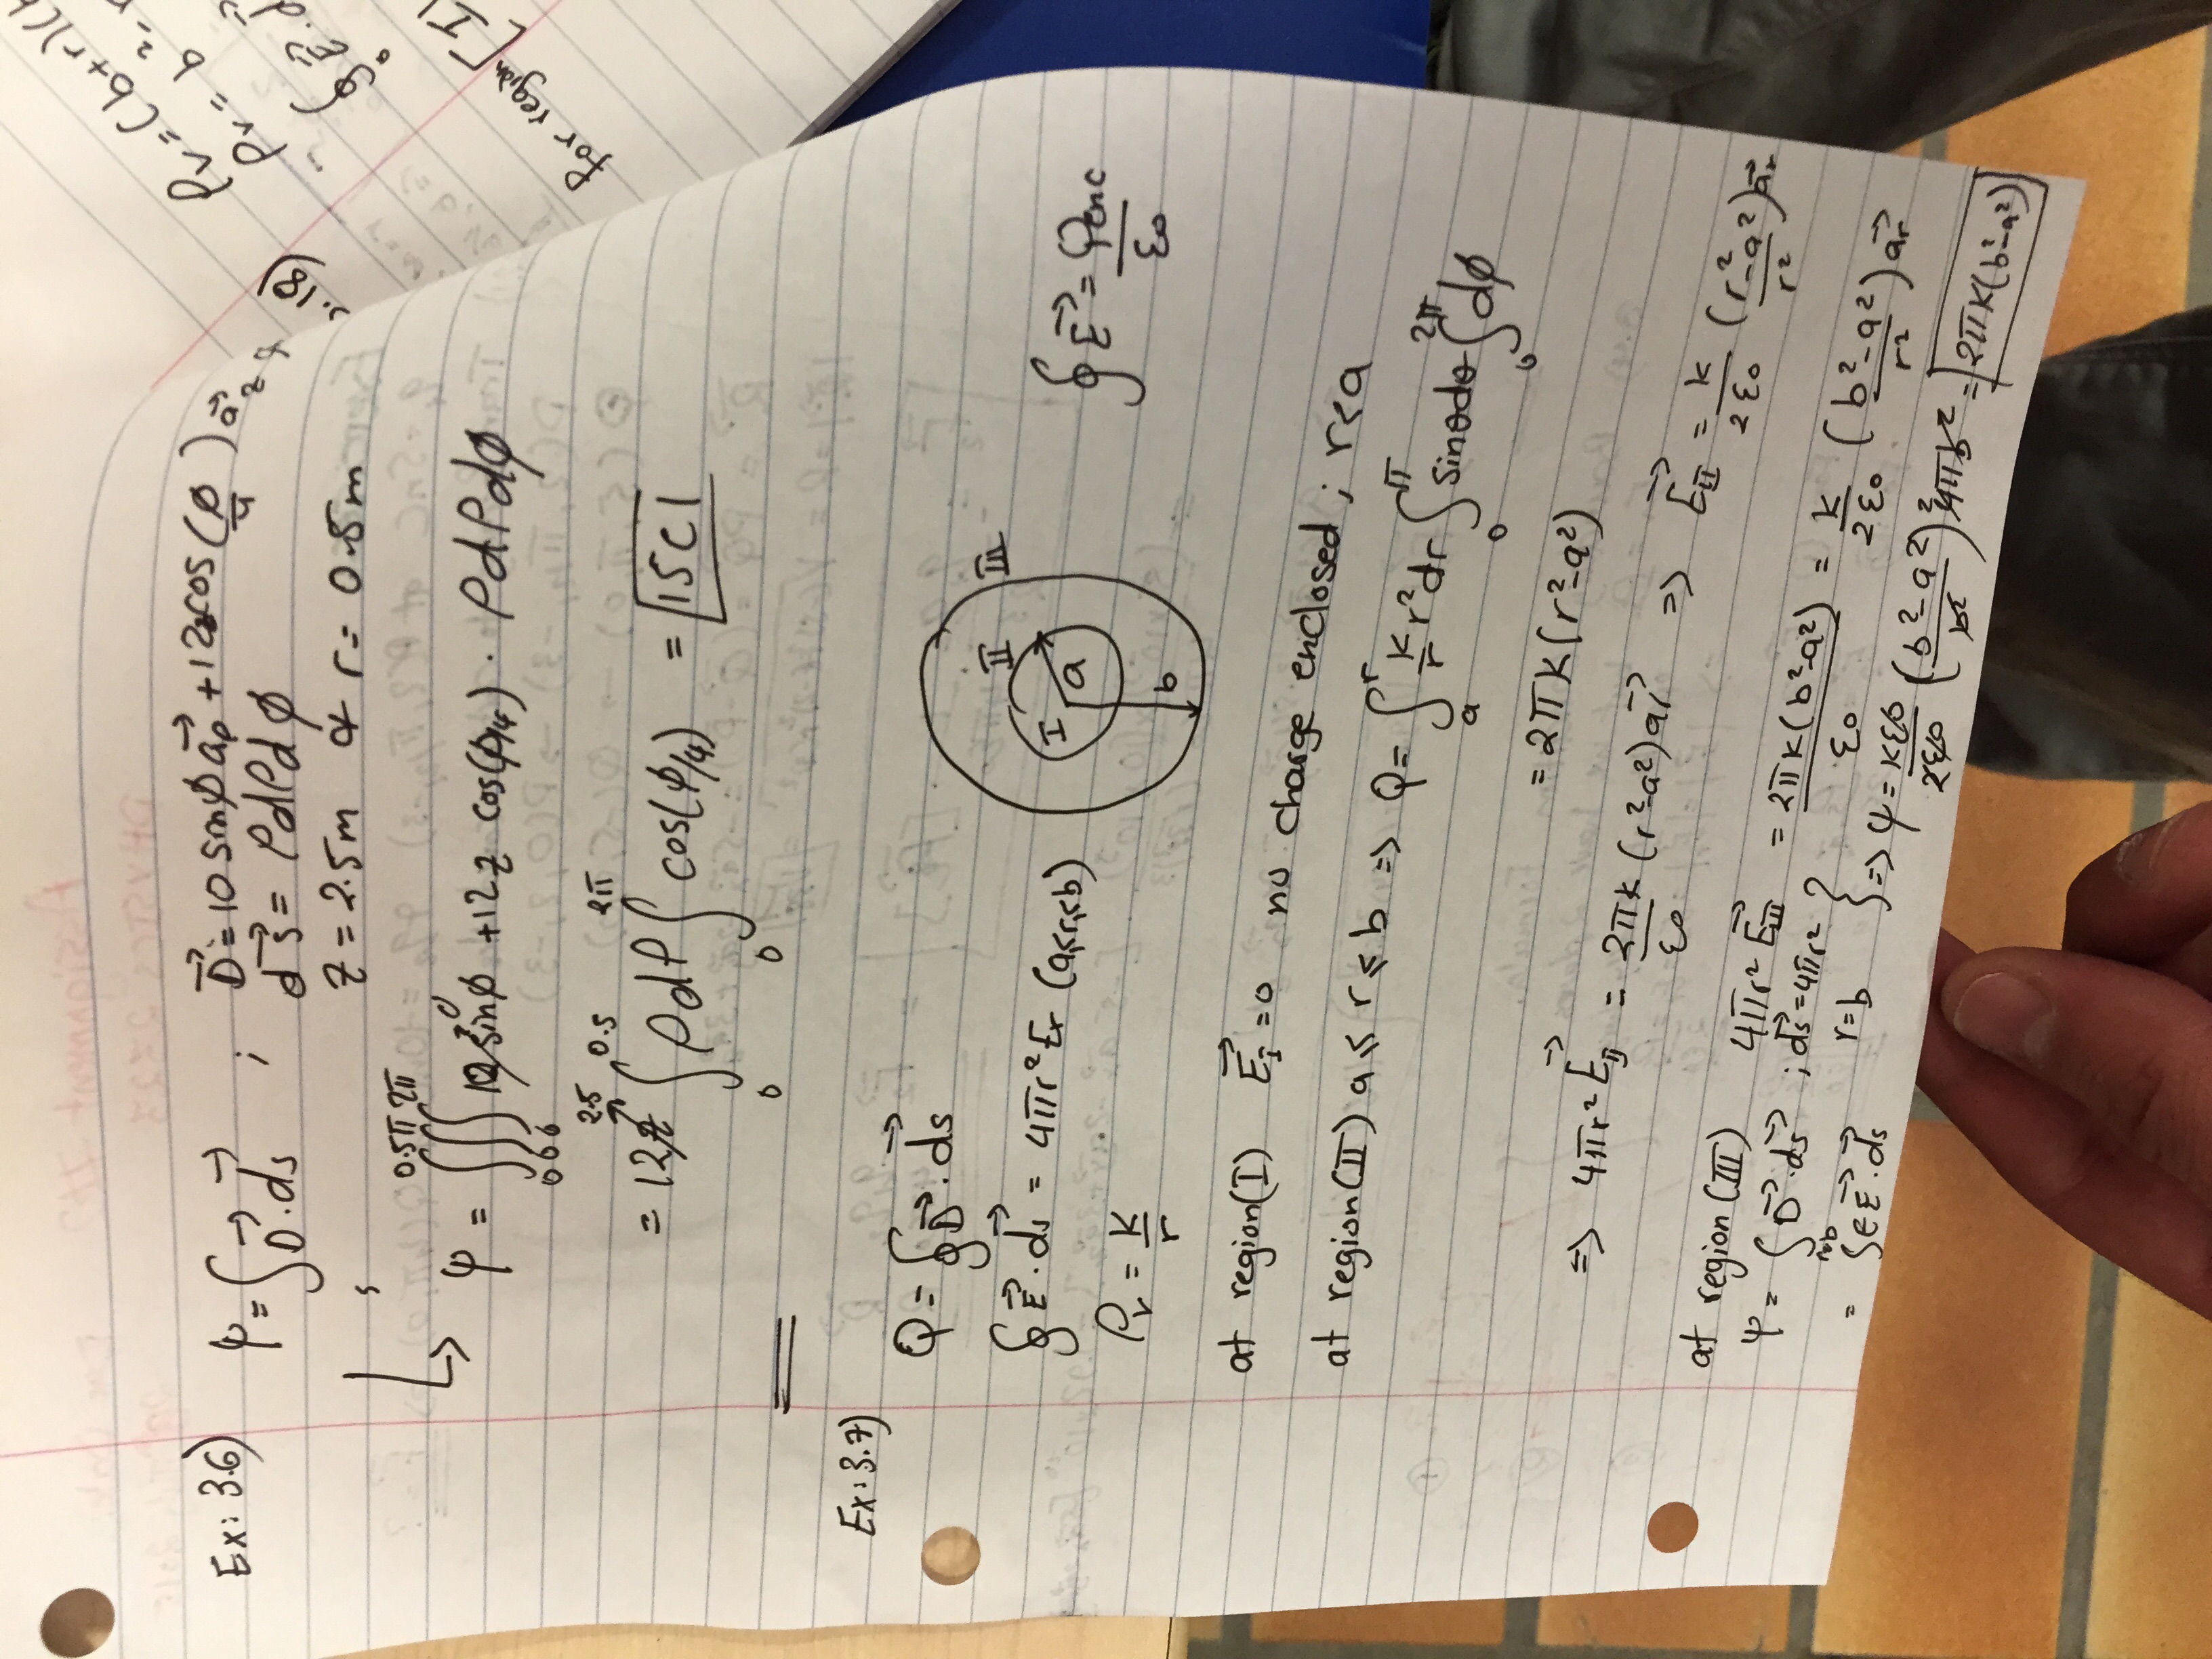 Ex: 3.6) ψ = ∫D⃗.ds⃗ ; D⃗ = 10 sinϕ a⃗ρ + 12z cos(ϕ/4) a⃗z
ds⃗ = ρdρdϕ
z = 2.5m & r = 0.5m
↳ ψ = ∫∫∫ 10 sinϕ + 12z cos(ϕ/4) . ρdρdϕ
= 12z ∫₀^0.5 ρdρ ∫₀^2π cos(ϕ/4) = 15C
Ex: 3.7) Q = ∮D⃗.ds⃗
∮E⃗.ds⃗ = 4πr²Er (a≤r≤b)
∮E⃗ = Qenc/ε₀
ρv = K/r
I II III a b
at region(I) E⃗I = 0 no charge enclosed ; r<a
at region(II) a ≤ r ≤ b => Q = ∫ₐ^r K/r r²dr ∫₀^π sinθdθ ∫₀^2π dϕ
= 2πK(r²-a²)
=> 4πr² E⃗II = 2πK/ε₀ (r²-a²) a⃗r => E⃗II = K/2ε₀ (r²-a²/r²) a⃗r
at region(III) 4πr² E⃗III = 2πK(b²-a²)/ε₀ = K/2ε₀ (b²-a²/r²) a⃗r
ψ = ∫D⃗.ds⃗ ; ds⃗ = 4πr²
r=b
= ∫εE⃗.ds } => ψ = Kε₀/2ε₀ (b²-a²/b²) 4πb² = 2πK(b²-a²)
ρv = (b+r)(
ρv = b²
for region [I]